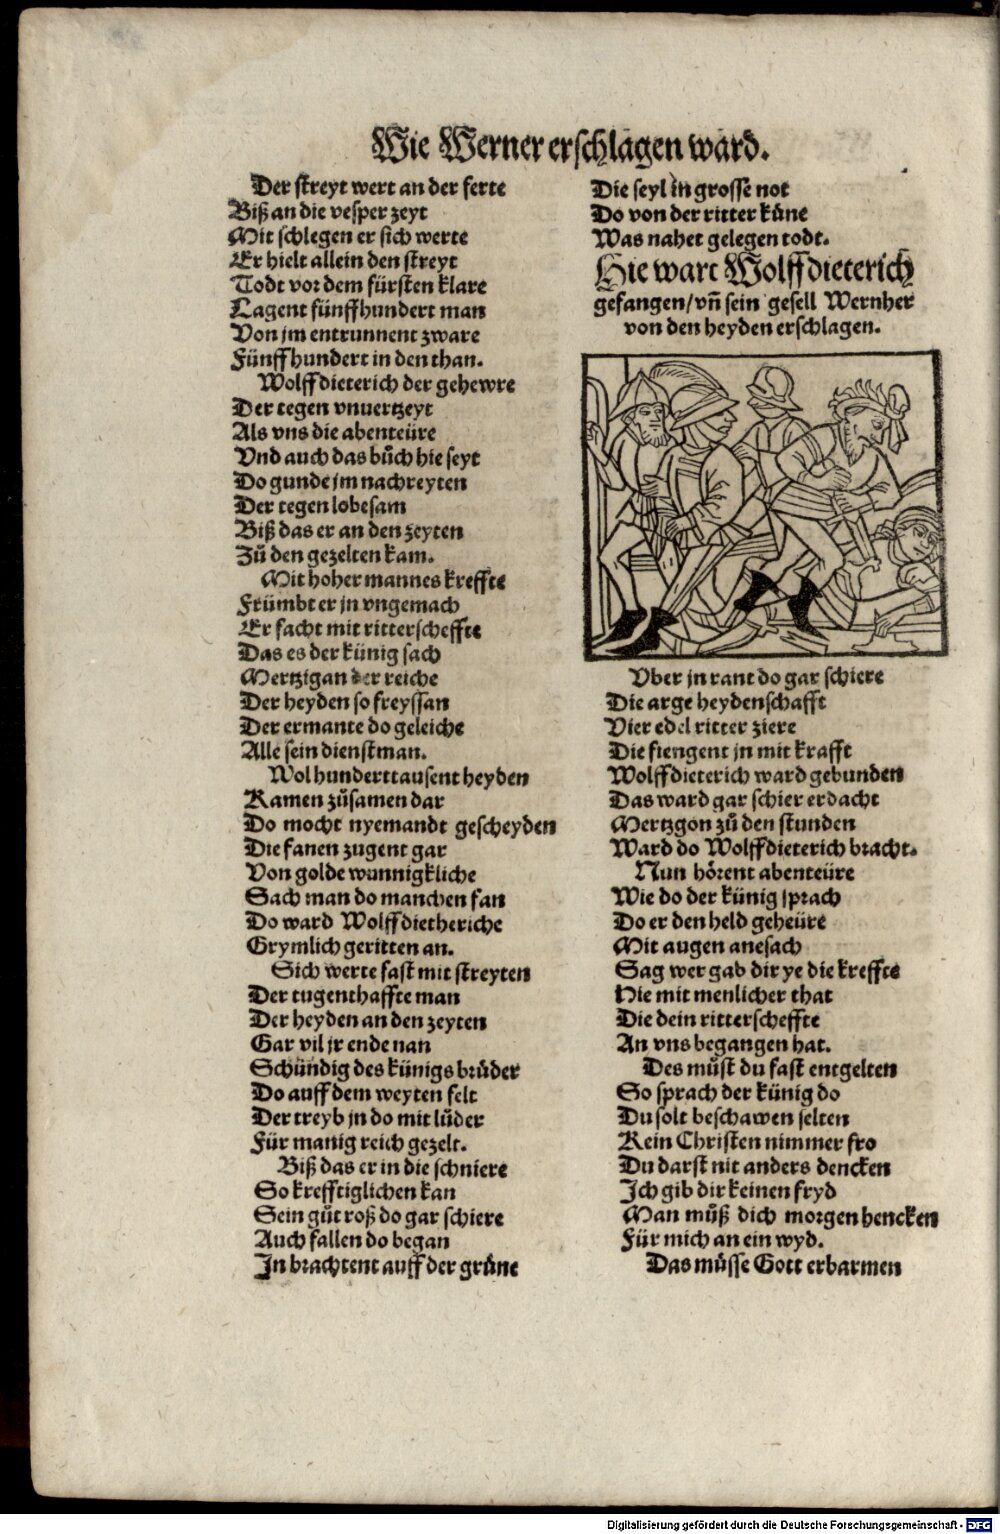 Wie Werner erschlagen ward.
Der streyt wert an der ferte
Biß an die vesper zeyt
Mit schlegen er sich werte
Er hielt allein den streyt
Todt vor dem fürsten klare
Lagent fünffhundert man
Von jm entrunnent zware
Fünffhundert in den than.
Wolffdieterich der gehewre
Der tegen vnuertzeyt
Als vns die abenteüre
Vnd auch das bůch hie seyt
Do gunde jm nachreyten
Der tegen lobesam
Biß das er an den zeyten
Zů den gezelten kam.
Mit hoher mannes kreffte
Frümbt er jn vngemach
Er facht mit ritterscheffte
Das es der künig sach
Mertzigan der reiche
Der heyden so freyssan
Der ermante do geleiche
Alle sein dienstman.
Wol hunderttausent heyden
Kamen zůsamen dar
Do mocht nyemandt gescheyden
Die fanen zugent gar
Von golde wunnigkliche
Sach man do manchen fan
Do ward Wolffdietheriche
Grymlich geritten an.
Sich werte fast mit streyten
Der tugenthaffte man
Der heyden an den zeyten
Gar vil jr ende nan
Schündig des künigs brůder
Do auff dem weyten felt
Der treyb jn do mit lůder
Für manig reich gezelt.
Biß das er in die schniere
So krefftiglichen kan
Sein gůt roß do gar schiere
Auch fallen do began
In brachtent auff der grüne
Die seyl in grosse not
Do von der ritter küne
Was nahet gelegen todt.
Hie wart Wolffdieterich
gefangen/vñ sein gesell Wernher
von den heyden erschlagen.
Vber jn rant do gar schiere
Die arge heydenschafft
Vier edel ritter ziere
Die fiengent jn mit krafft
Wolffdieterich ward gebunden
Das ward gar schier erdacht
Mertzgon zů den stunden
Ward do Wolffdieterich bracht.
Nun hörent abenteüre
Wie do der künig sprach
Do er den held geheüre
Mit augen anesach
Sag wer gab dir ye die kreffte
Hie mit menlicher that
Die dein ritterscheffte
An vns begangen hat.
Des můst du fast entgelten
So sprach der künig do
Du solt beschawen selten
Kein Christen nimmer fro
Du darst nit anders dencken
Ich gib dir keinen fryd
Man můß dich morgen hencken
Für mich an ein wyd.
Das müsse Gott erbarmen
Digitalisierung gefördert durch die Deutsche Forschungsgemeinschaft - DFG